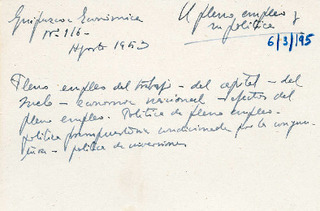 Guipuzcoa Económica
Nº 116-
Agosto 1953
El pleno empleo y
su política
6/3/95
Pleno empleo del trabajo - del capital - del
suelo - economía nacional - efectos del
pleno empleo. Política de pleno empleo.
política presupuestaria condicionada por la coyun-
tura - política de inversiones